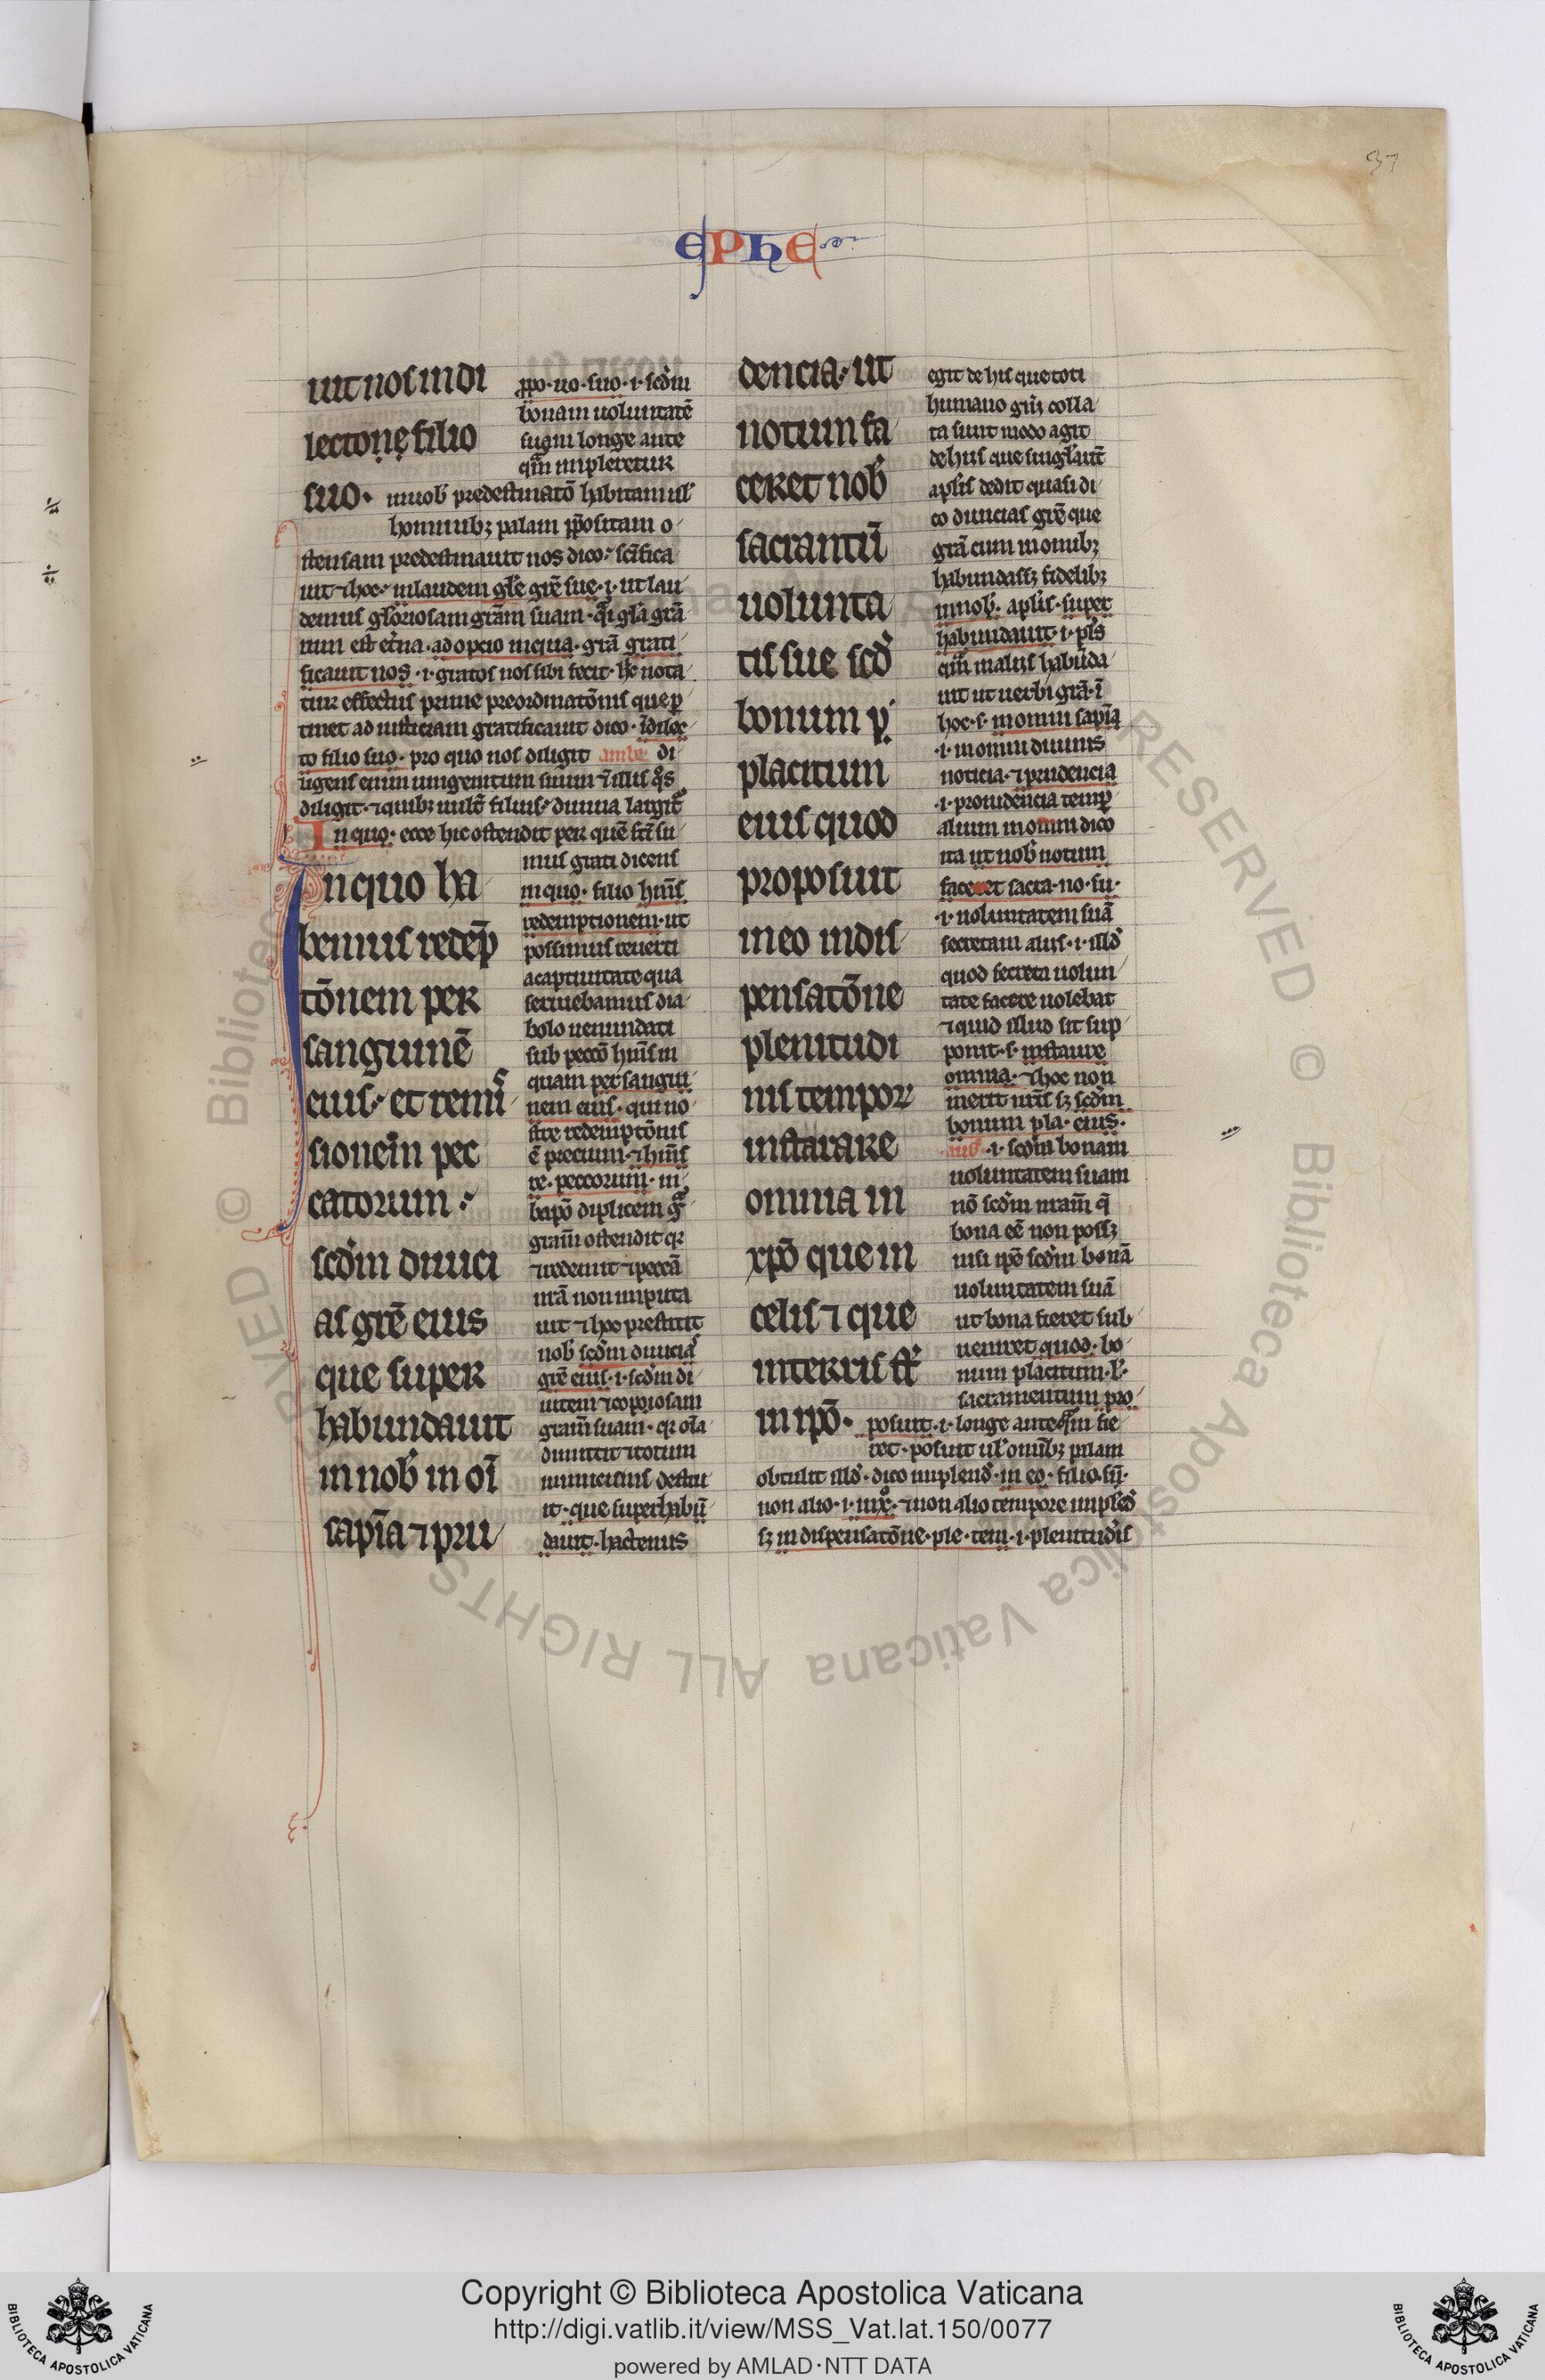 37
EPHE
uit nos in di
lectōne filio
suo·
ꝓpo· uo· suo· i· scd̓m
bonam uoluntatē
suam longe ante
qm̄ impleretur
in nob̓ predestinatō habitam ul̓
hominibꝫ palam ꝓpositam o
stensam predestinauit nos dico· sc̄ifica
uit ⁊ hoc· in laudem gl̓e gr̄e sue· i· ut lau
demus gl̓oriosam grām suam· gl̓a grā
num est et̓na· adopcio in qua· grā grati
ficauit nos· i· gratos nos sibi fecit· nota
tur effectus prime preordinatōnis que ꝑ
tinet ad iusticiam gratificauit dico· ī dilec
to filio suo· pro quo nos diligit di
ligens enim unigenitum suum ⁊ illos
diligit· ⁊ quibꝫ filius· diuina
In quo· ecce hic ostendit per quē su
mus grati dicens
in quo· filio hm̄s
redemptionem· ut
possimus reuerti
a captiuitate qua
seruiebamus dia
bolo uenundati
sub peccō hm̄s in
quam per sangui
nem eius· qui nō
stre redemptōnis
ē precium· ⁊ hm̄s
re· peccorum· in
bapō duplicem
gram̄ ostendit qr
⁊ redemit ⁊ peccā
nrā non imputa
uit ⁊ hoc prestitit
nob̓ scd̓m diuicia
gr̄e eius· i· scd̓m di
uitem ⁊ copiosam
gram̄ suam· qr om̄a
dimittit ⁊ totum
inimicicius destru
it· que superhabū
dauit· hactenus
In quo ha
bemus redēp
tōnem per
sanguinē
eius· et remis
sionem pec
catorum·
scd̓m diuici
as gr̄e eius
que super
habundauit
in nob̓ in oī
sapīa ⁊ pru
dencia· ut
notum fa
ceret nob̓
sacramtū
uolunta
tis sue scd̓
bonum
placitum
eius quod
proposuit
in eo in dis
pensatōne
plenitudi
nis tempor
instaurare
omnia in
xpō que in
celis ⁊ que
in terris st̓
in ipō·
egit de his que toti
humano gn̓i colla
ta sunt modo agit
de his que singl̓ari
aplis dedit quasi di
co diuicias gr̄e que
grā cum in omibꝫ
habundassꝫ fidelibꝫ
in nob̓· aplis· super
habundauit· i· pl̓s
qm̄ in aliis habūda
uit ut uerbi grā· ī
hoc· s· in omni sapīa
·i· in omni diuinis
noticia· ⁊ prudencia
·i· prouidencia temꝑ
alium in omni dico
ita ut nob̓ notum
faceret sacra· no· su·
·i· uoluntatem suā
secretam aliis· i· illd̓
quod secreta uolun
tate facere uolebat
⁊ quid illud sit sup
ponit· s· instaure
omnia· ⁊ hoc non
merit nr̄is sꝫ scd̓m
bonum pla· eius·
·i· scd̓m bonam
uoluntatem suam
nō scd̓m nram̄ q̄
bona eē non possꝫ
nisi ipō scd̓m bonā
uoluntatem suā
ut bona fieret sub
ueniret quod· bo
num placitum· l̓·
sacramentum pro
posuit· i· longe anteqm̄ fie
ret· posuit ul̓ omībꝫ palam
obtulit illd̓· dico implend̓· in eo· filio· sū·
non alio· i· in x̄· ⁊ non alio tempore impled̓
sꝫ in dispensatōne· ple· tem· i· plenitudīs
Copyright © Biblioteca Apostolica Vaticana
http://digi.vatlib.it/view/MSS_Vat.lat.150/0077
powered by AMLAD·NTT DATA
BIBLIOTECA APOSTOLICA VATICANA
BIBLIOTECA APOSTOLICA VATICANA
© Biblioteca Apostolica Vaticana ALL RIGHTS RESERVED